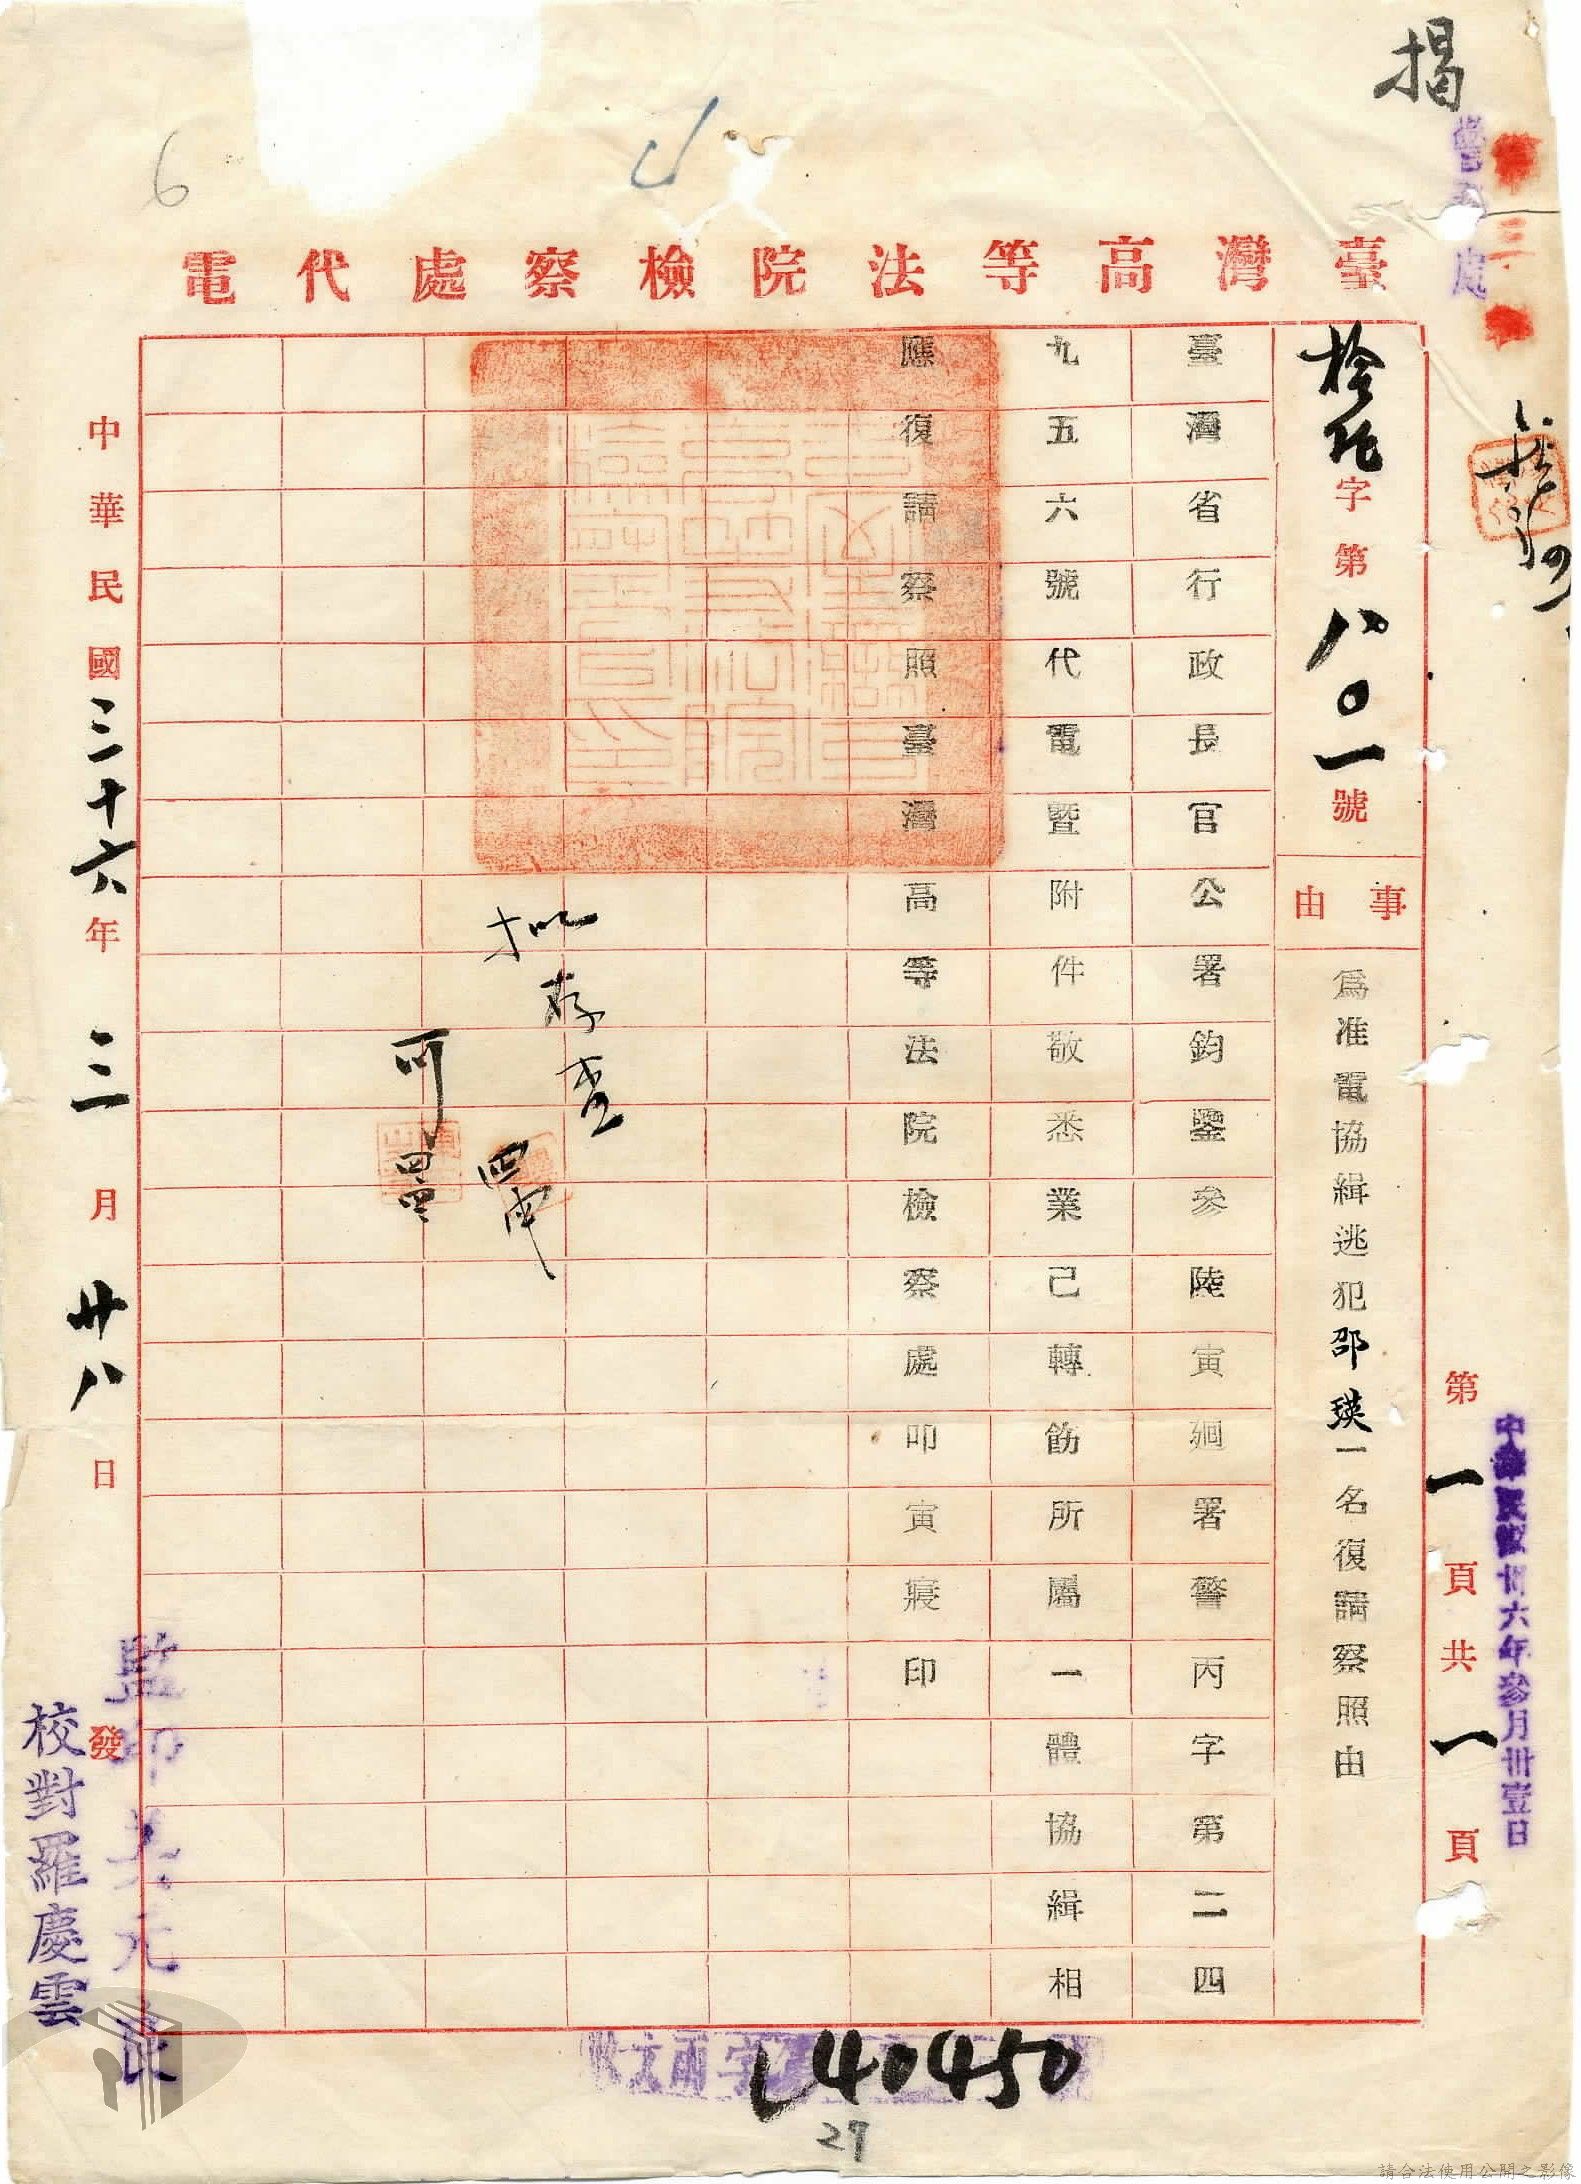 揭
警務處
第三科
臺灣高等法院檢察處代電
字第八〇一號
事由
為准電協緝逃犯邵瑛一名復請察照由
臺灣省行政長官公署鈞鑒參陸寅廻署警丙字第二四
九五六號代電暨附件敬悉業已轉飭所屬一體協緝相
應復請察照臺灣高等法院檢察處叩寅寢印
擬存查
可
中華民國三十六年三月廿八日發
監印
校對羅慶雲
第一頁共一頁
中華民國卅六年參月卅壹日
收文丙字
40450
27
6
請合法使用公開之影像